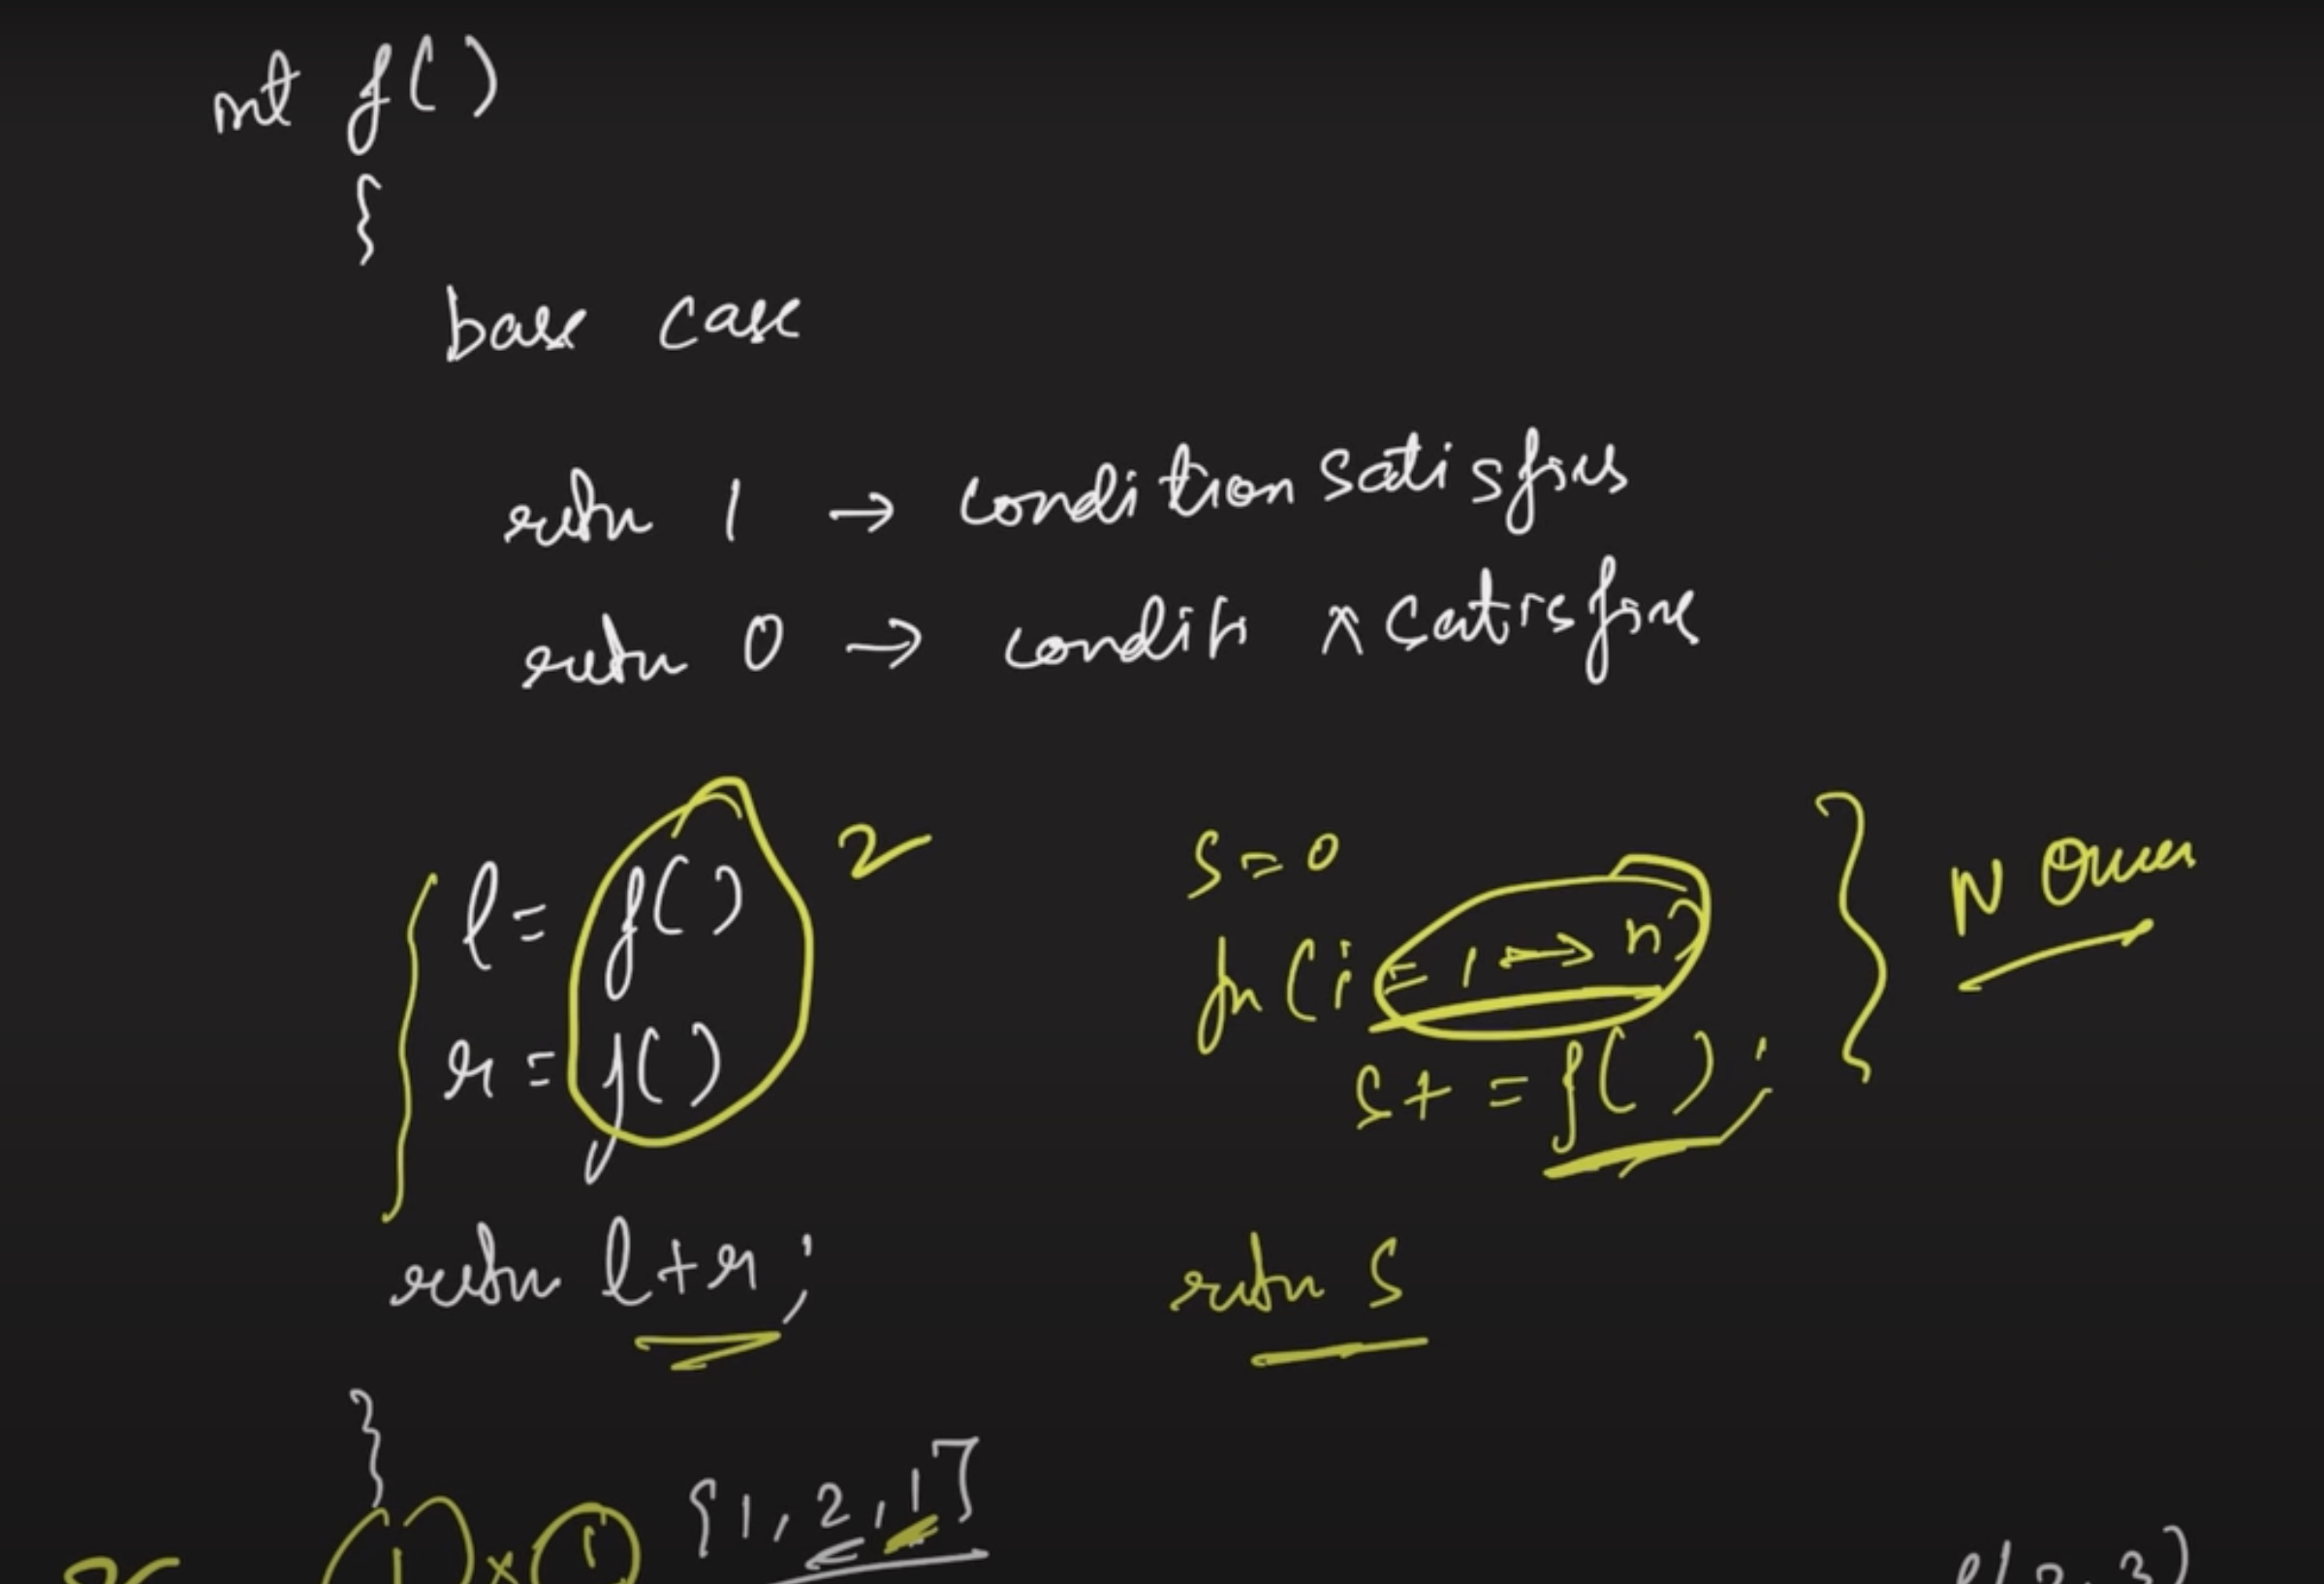 int f()
{
base case
return 1 → condition satisfies
return 0 → conditn x satisfies
l = f()
r = f()
2
return l+r;
}
s = 0
for (i = 1 → n)
s += f();
return s
} N Queen
[1, 2, 1]